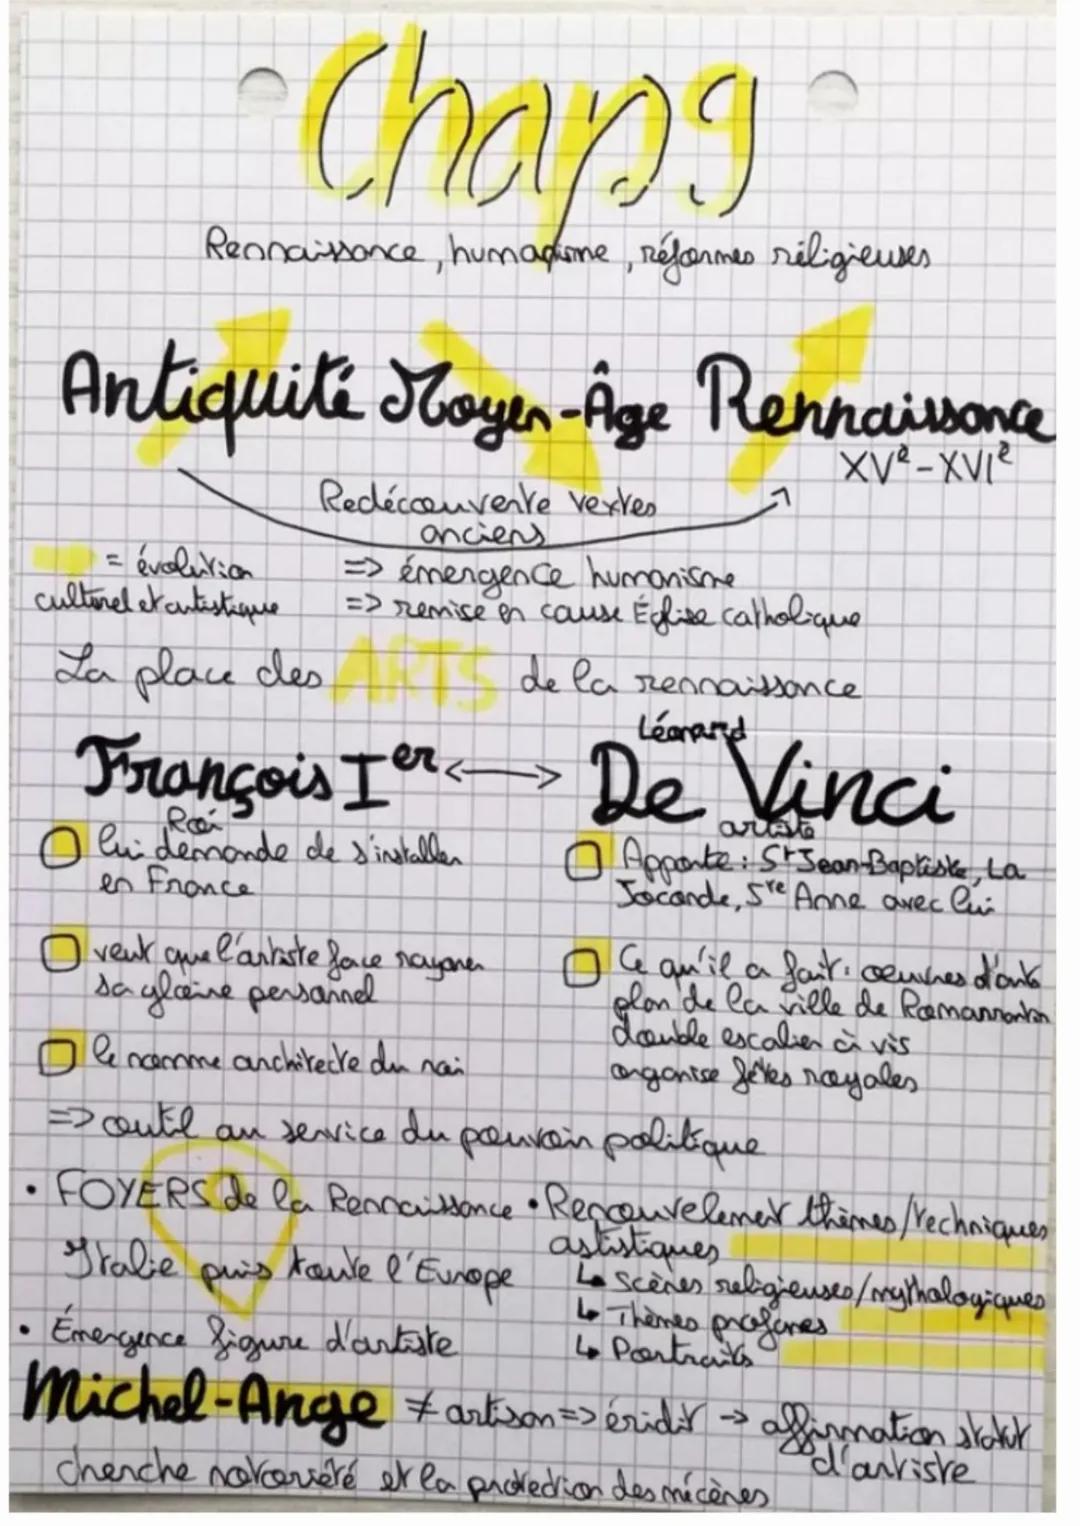 Chap 9
Rennaissance, humanisme, réformes réligieuses
Antiquité Moyen-Âge Rennaissance
XVe-XVIe
Redécouverte textes
anciens
= évolution
culturel et artistique
=> émergence humanisme
=> remise en cause Église catholique
La place des ARTS de la rennaissance
François Ier <-> Léonard De Vinci
Roi
artiste
lui demande de s'installer
en France
Apporte : St Jean-Baptiste, La
Joconde, Ste Anne avec lui
veut que l'artiste face rayoner
sa gloire personnel
Ce qu'il a fait : oeuvres d'arts
plan de la ville de Romarantin
double escalier à vis
organise fêtes royales
le nomme architecte du roi
=> outil au service du pouvoir politique
• FOYERS de la Rennaissance
Italie puis toute l'Europe
• Renouvelement thèmes/techniques
astistiques
↳ scènes religieuses/mythologiques
↳ Thèmes profanes
↳ Portraits
• Émergence figure d'artiste
Michel-Ange ≠ artisan => éridit → affirmation statut
d'artiste
cherche notoriété et la protection des mécènes